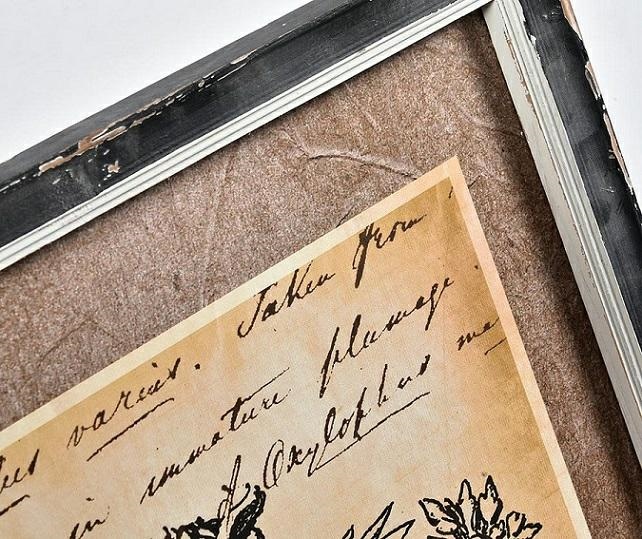 varius. Taken from
in immature plumage.
of Oxylophus